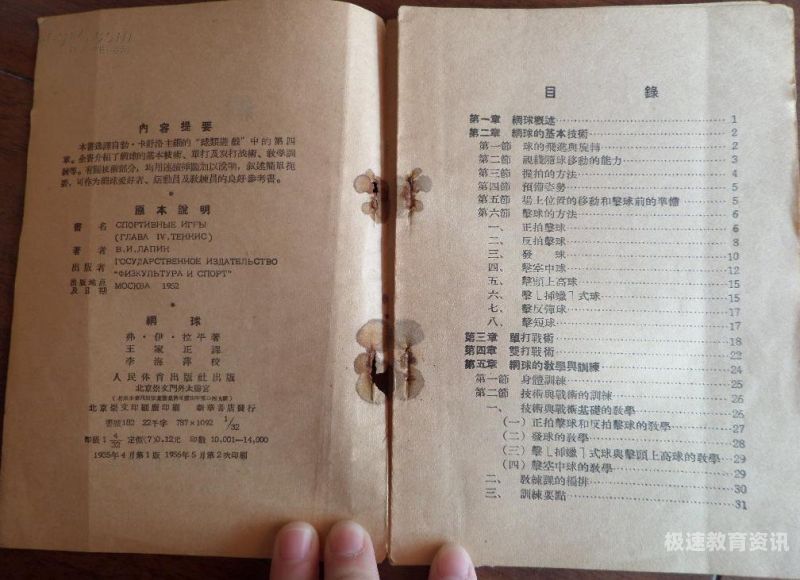 內容提要
本書選譯自勃·卡舒滑主編的“球類遊戲”中的第四
章。全書介紹了網球的基本技術、單打及双打战術、教學訓
練等。有關技術部分，均用連續插圖加以說明，叙述簡單扼
要，可作为網球爱好者、运動員及教練員的良好参考書。
原本說明
書名 СПОРТИВНЫЕ ИГРЫ
(ГЛАВА IV, ТЕННИС)
著者 В.И.ЛАПИН
出版者 ГОСУДАРСТВЕННОЕ ИЗДАТЕЛЬСТВО
“ФИЗКУЛЬТУРА И СПОРТ”
出版地点及日期 МОСКВА 1952
網球
弗·伊·拉平著
王家正譯
李海萍校
人民体育出版社出版
北京崇文門外太陽宮
北京崇文印刷廠印刷 新華書店發行
書號182 22千字 787×1092 1/32
印張1 4/32 定價(7)0.12元 印数 10,001—14,000
1955年4月第1版 1956年5月第2次印刷
目錄
第一章 網球概述 1
第二章 網球的基本技術 2
第一節 球的飛進與旋轉 2
第二節 視綫隨球移動的能力 3
第三節 握拍的方法 4
第四節 預備姿勢 5
第五節 場上位置的移動和擊球前的準備 5
第六節 擊球的方法 6
一、正拍擊球 6
二、反拍擊球 8
三、發球 10
四、擊空中球 12
五、擊頭上高球 15
六、擊「挿蠟」式球 15
七、擊反彈球 17
八、擊短球 17
第三章 單打戰術 18
第四章 雙打戰術 22
第五章 網球的教學與訓練 24
第一節 身體訓練 24
第二節 技術與戰術的訓練 25
一、技術與戰術基礎的教學 26
(一)正拍擊球和反拍擊球的教學 27
(二)發球的教學 28
(三)擊「挿蠟」式球與擊頭上高球的教學 29
(四)擊空中球的教學 29
二、教練課的編排 30
三、訓練要點 31
极速教育资讯